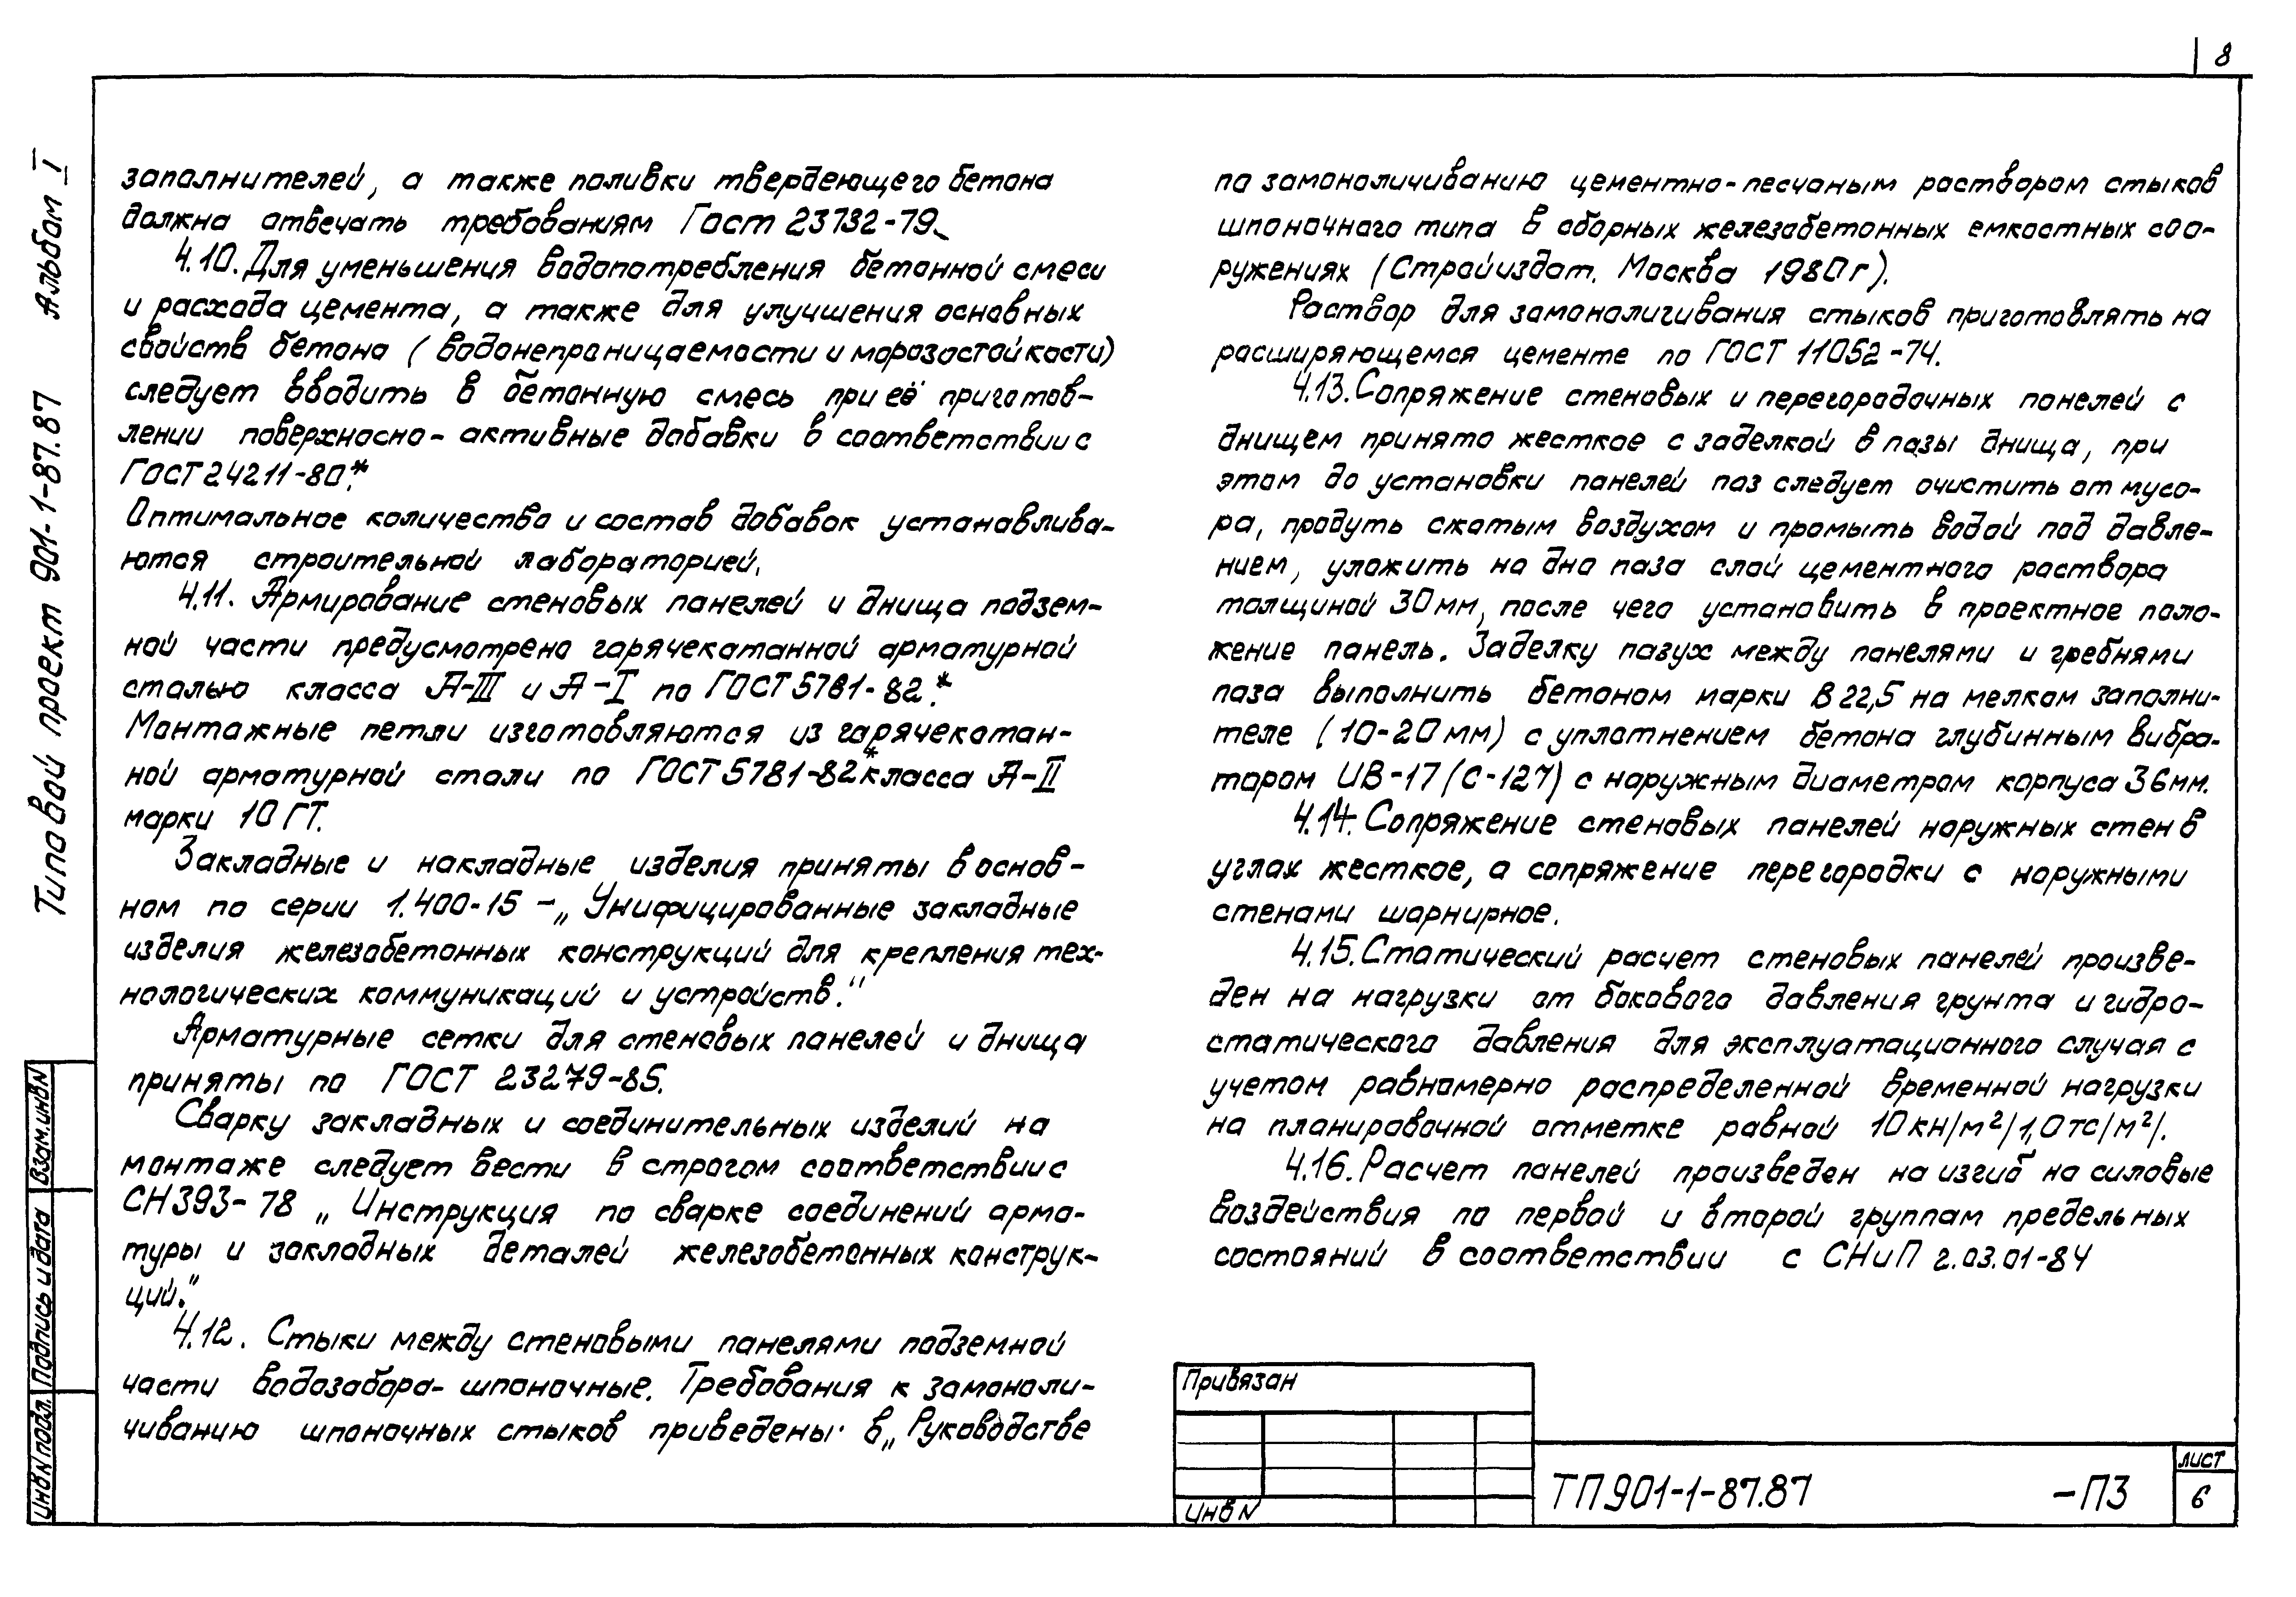 8
Типовой проект 901-1-87.87 Альбом I
заполнителей, а также поливки твердеющего бетона
должна отвечать требованиям Гост 23732-79.
4.10. Для уменьшения водопотребления бетонной смеси
и расхода цемента, а также для улучшения основных
свойств бетона (водонепроницаемости и морозостойкости)
следует вводить в бетонную смесь при её приготов-
лении поверхносно-активные добавки в соответствии с
ГОСТ 24211-80.*
Оптимальное количество и состав добавок устанавлива-
ются строительной лабораторией.
4.11. Армирование стеновых панелей и днища подзем-
ной части предусмотрено горячекатанной арматурной
сталью класса А-III и А-I по ГОСТ 5781-82.*
Монтажные петли изготовляются из горячекатан-
ной арматурной стали по ГОСТ 5781-82* класса А-II
марки 10 ГТ.
Закладные и накладные изделия приняты в основ-
ном по серии 1.400-15 -„Унифицированные закладные
изделия железобетонных конструкций для крепления тех-
нологических коммуникаций и устройств."
Арматурные сетки для стеновых панелей и днища
приняты по ГОСТ 23279-85.
Сварку закладных и соединительных изделий на
монтаже следует вести в строгом соответствии с
СН 393-78 „Инструкция по сварке соединений арма-
туры и закладных деталей железобетонных конструк-
ций."
4.12. Стыки между стеновыми панелями подземной
части водозабора- шпоночные. Требования к замоноли-
чиванию шпоночных стыков приведены в „Руководстве
по замоноличиванию цементно-песчаным раствором стыков
шпоночного типа в сборных железобетонных емкостных соо-
ружениях (Стройиздат. Москва 1980г).
Раствор для замоноличивания стыков приготовлять на
расширяющемся цементе по ГОСТ 11052-74.
4.13. Сопряжение стеновых и перегородочных панелей с
днищем принято жесткое с заделкой в пазы днища, при
этом до установки панелей паз следует очистить от мусо-
ра, продуть сжатым воздухом и промыть водой под давле-
нием, уложить на дно паза слой цементного раствора
толщиной 30 мм, после чего установить в проектное поло-
жение панель. Заделку пазух между панелями и гребнями
паза выполнить бетоном марки В 22,5 на мелком заполни-
теле (10-20 мм) с уплотнением бетона глубинным вибра-
тором ИВ-17 (С-127) с наружным диаметром корпуса 36мм.
4.14. Сопряжение стеновых панелей наружных стен в
углах жесткое, а сопряжение перегородки с наружными
стенами шарнирное.
4.15. Статический расчет стеновых панелей произве-
ден на нагрузки от бокового давления грунта и гидро-
статического давления для эксплуатационного случая с
учетом равномерно распределенной временной нагрузки
на планировочной отметке равной 10 кн/м²/1,0 тс/м²/.
4.16. Расчет панелей произведен на изгиб на силовые
воздействия по первой и второй группам предельных
состояний в соответствии с СНиП 2.03.01-84
Привязан
Инв N
ТП 901-1-87.87 -ПЗ
лист
6
Инв N подл. Подпись и дата Взам.инв N